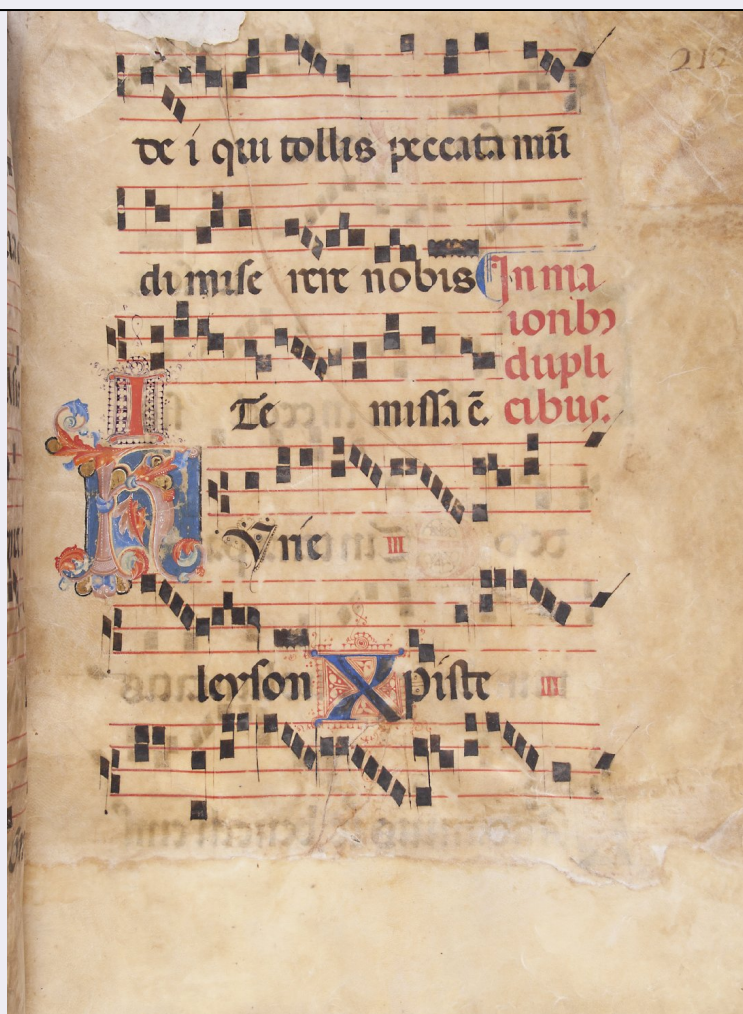 212
de i qui tollis peccata mu̅
di mise rere nobis In ma
ionibꝫ
dupli
I Te missa e̅. cibus.
K Yrie iii
leyson Xpiste iii